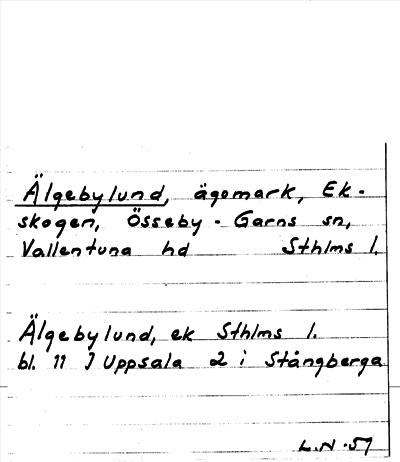 Älgebylund, ägomark, Ek-
skogen, Össeby - Garns sn,
Vallentuna hd Sthlms l.
Älgebylund, ek Sthlms l.
bl. 11 J Uppsala 2 i Stångberga
L.N.57